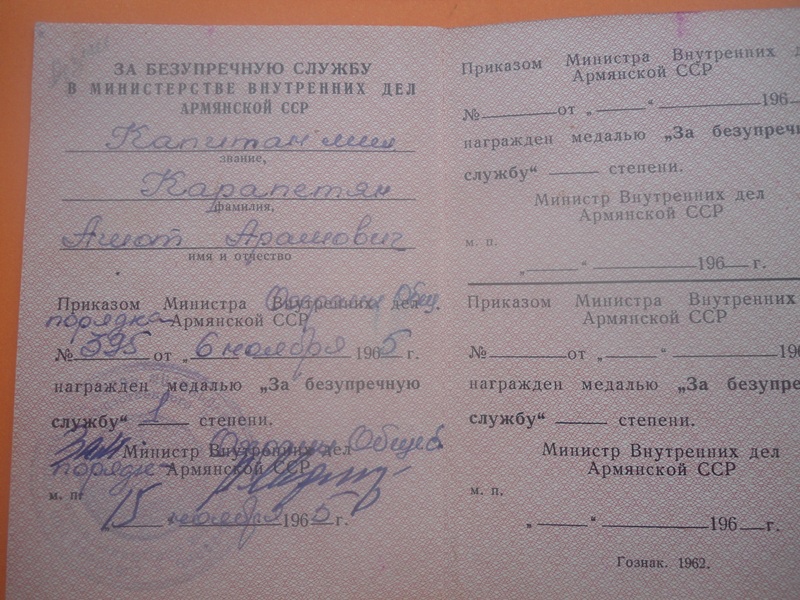 ЗА БЕЗУПРЕЧНУЮ СЛУЖБУ
В МИНИСТЕРСТВЕ ВНУТРЕННИХ ДЕЛ
АРМЯНСКОЙ ССР
Капитан мил
звание,
Карапетян
фамилия,
Ашот Арамович
имя и отчество
Приказом Министра Внутренних дел Охраны Общ.
порядка Армянской ССР
№ 395 от „ 6 ноября 1965 г.
награжден медалью „За безупречную
службу“ 1 степени.
Зам Министр Внутренних дел Охраны Общей
порядк Армянской ССР
м. п.
15 ноября 1965 г.
Приказом Министра Внутренних
Армянской ССР
№ от „ “ 196
награжден медалью „За безупречн
службу“ степени.
Министр Внутренних дел
Армянской ССР
м. п.
„ “ 196 г.
Приказом Министра Внутренних
Армянской ССР
№ от „ “ 196
награжден медалью „За безупре
службу“ степени.
Министр Внутренних дел
Армянской ССР
м. п.
„ “ 196 г.
Гознак. 1962.